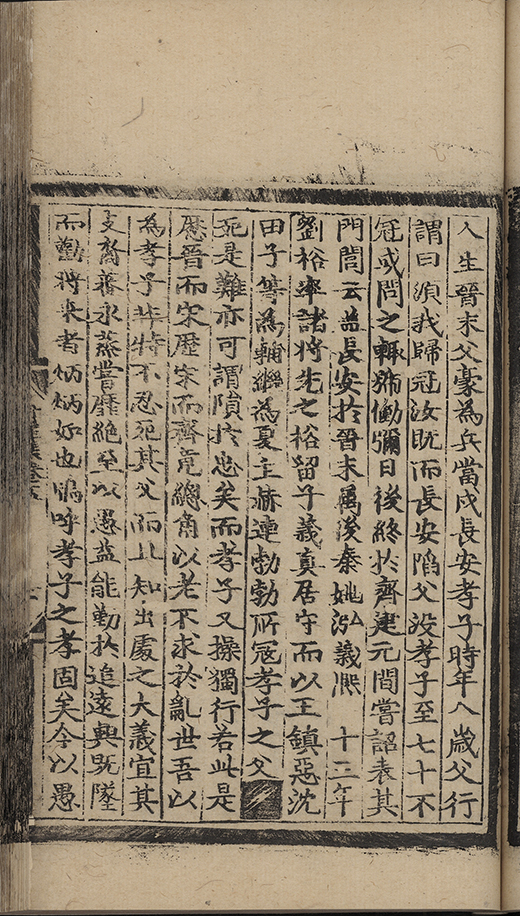 人生晉末父豪為兵當戍長安孝子時年八歲父行
謂曰須我歸冠汝既而長安陷父没孝子至七十不
冠或問之輒號慟彌日後終於齊建元間嘗詔表其
門閭云葢長安於晉末屬後秦姚泓義熙十三年
劉裕率諸將先之裕留子義真居守而以王鎮惡沈
田子等為輔繼為夏主赫連勃勃所冦孝子之父
死是難亦可謂隕於忠矣而孝子又操獨行若此是
歷晉而宋歷宋而齊竟總角以老不求於亂世吾以
為孝子非特不忍死其父而且知出處之大義宜其
支裔蕃永蒸嘗靡絶至以愚益能勤於追遠興既墜
而勸將来者炳炳如也嗚呼孝子之孝固矣今以愚